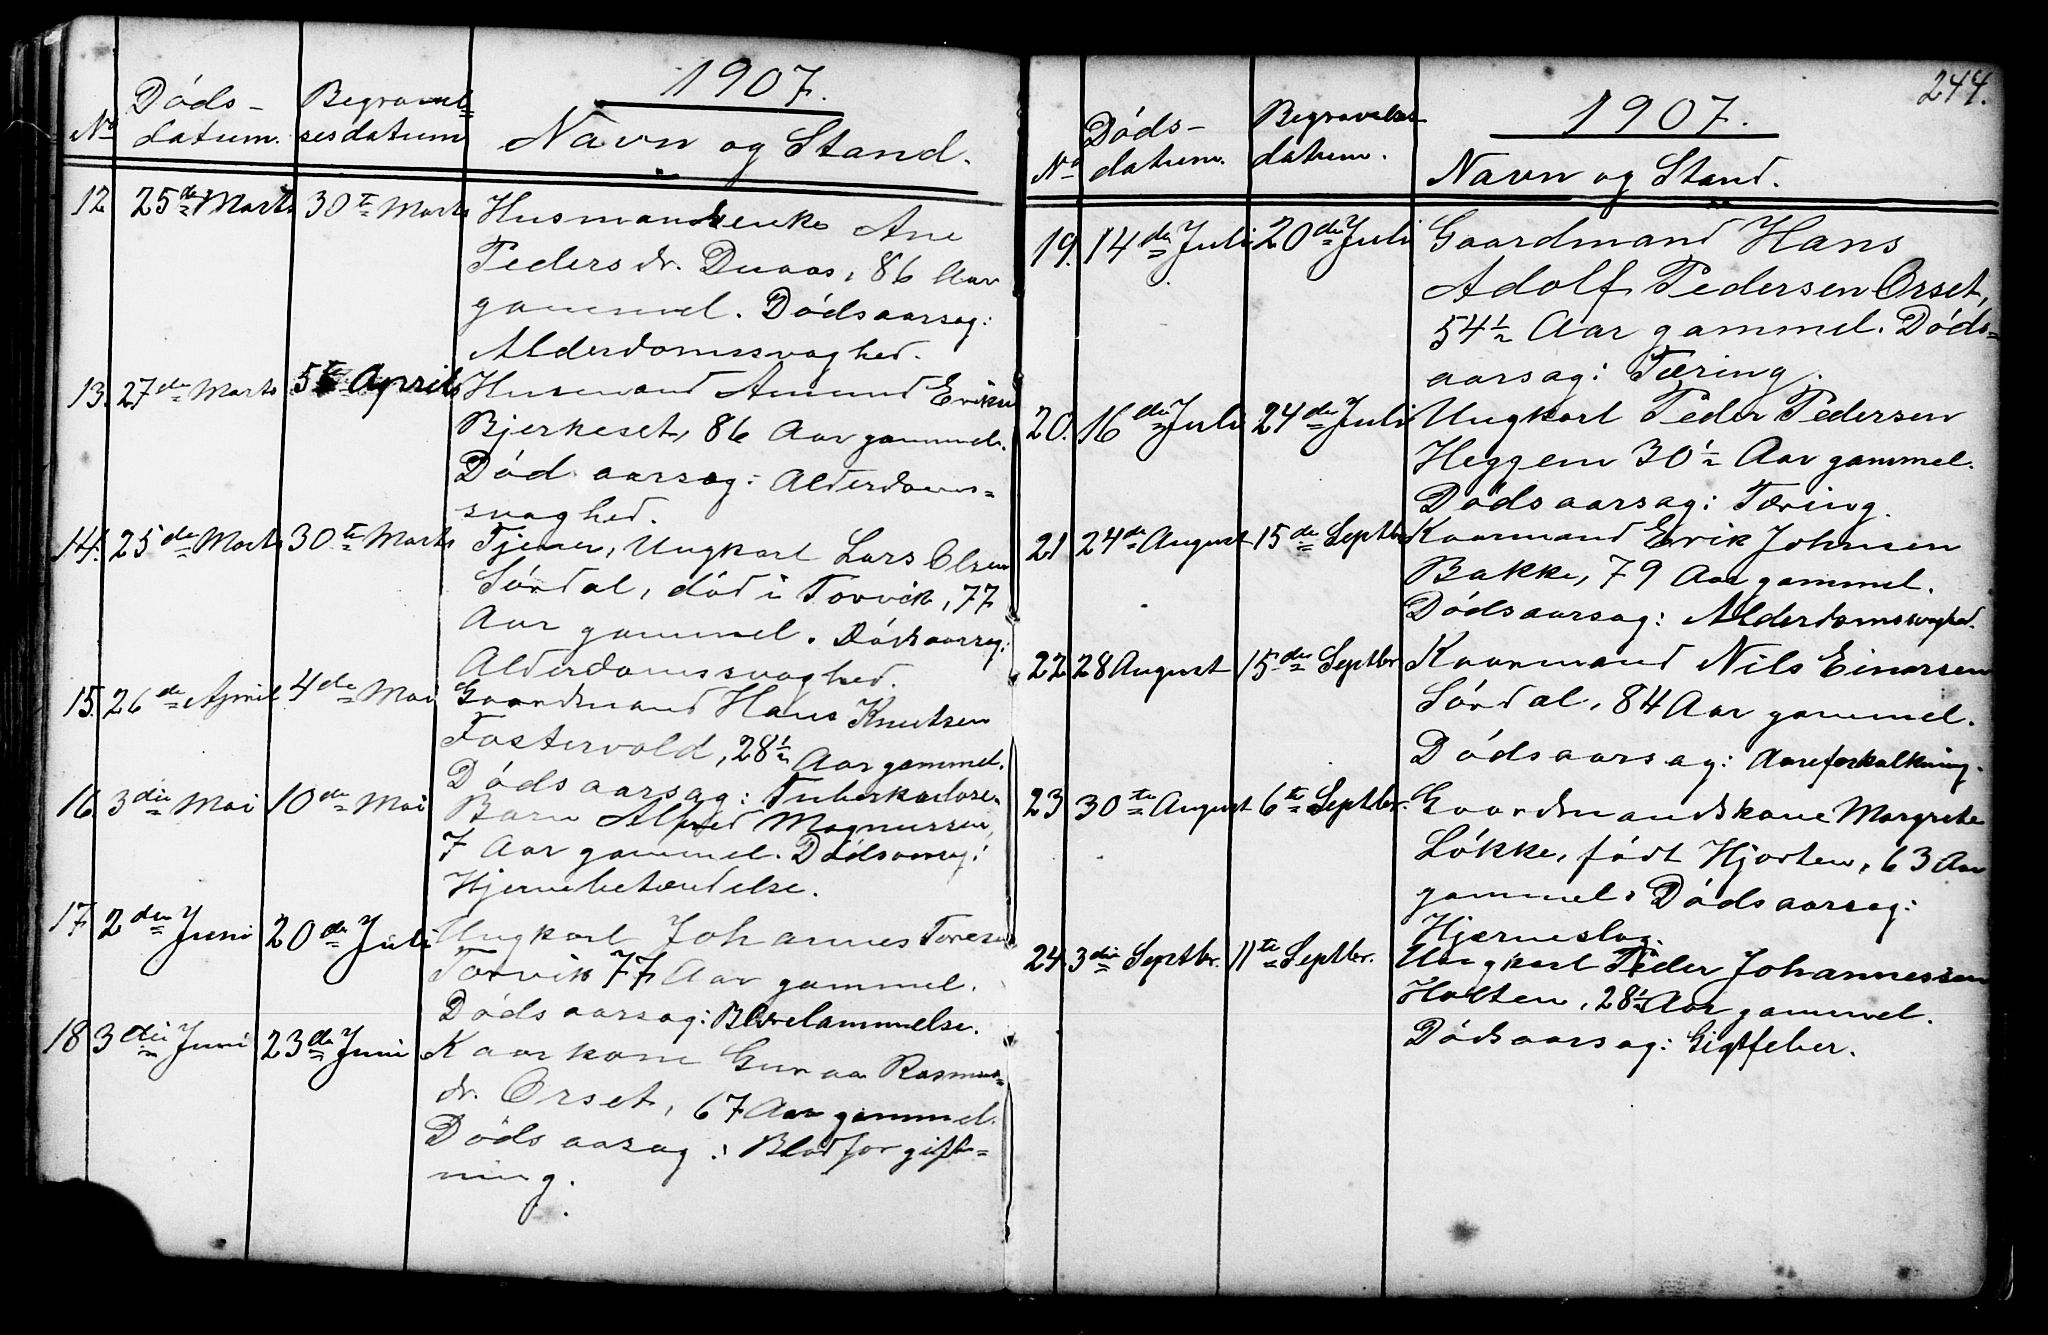 1907.
No Døds-datum. Begravel=sesdatum Navn og Stand.
12. 25de Marts 30te Marts Husmandsenke Ane
Pedersdr. Duaas, 86 Aar
gammel. Dødsaarsag:
Alderdomssvaghed.
13. 27de Marts 5te April Husmand Amund Eriksen
Bjerkeset, 86 Aar gammel.
Død aarsag: Alderdoms=
svaghed.
14. 25de Marts 30te Marts Tjener, Ungkarl Lars Olsen
Sørdal, død i Torvik, 77
Aar gammel. Dødsaarsag:
Alderdomssvaghed.
15. 26de April 4de Mai Gaardmand Hans Knutsen
Fostervold, 28½ Aar gammel.
Dødsaarsag: Tuberkulose.
16. 3die Mai 10de Mai Barn Alfred Magnussen,
7 Aar gammel. Dødsaarsag:
Hjernebetændelse.
17. 2den Juni 20de Juli Ungkarl Johannes Toresen
Torvik 77 Aar gammel.
Dødsaarsag: Blærelammelse.
18 3die Juni 23de Juni Kaarkone Guraa Rasmus=
dr. Orset, 67 Aar gammel.
Dødsaarsag: Blodforgift=
ning.
244.
1907.
No Døds-datum. Begravelsesdatum. Navn og Stand.
19. 14de Juli 20de Juli Gaardmand Hans
Adolf Pedersen Orset,
54½ Aar gammel. Døds=
aarsag: Tæring.
20. 16de Juli 24de Juli Ungkarl Peder Pedersen
Heggem 30½ Aar gammel.
Dødsaarsag: Tæring.
21 24de August 15de Septbr. Kaarmand Erik Johnsen
Bakke, 79 Aar gammel.
Dødsaarsag: Alderdomssvaghed.
22 28 August 15de Septbr Kaarmand Nils Einarsen
Sørdal, 84 Aar gammel.
Dødsaarsag: Aareforkalkning.
23 30te August 6te Septbr. Gaardmandskone Margrete
Løkke, født Hjorten, 63 Aar
gammel. Dødsaarsag:
Hjerneslag.
24. 3die Septbr. 11te Septbr. Ungkarl Peder Johannessen
Holten, 28½ Aar gammel.
Dødsaarsag: Gigtfeber.